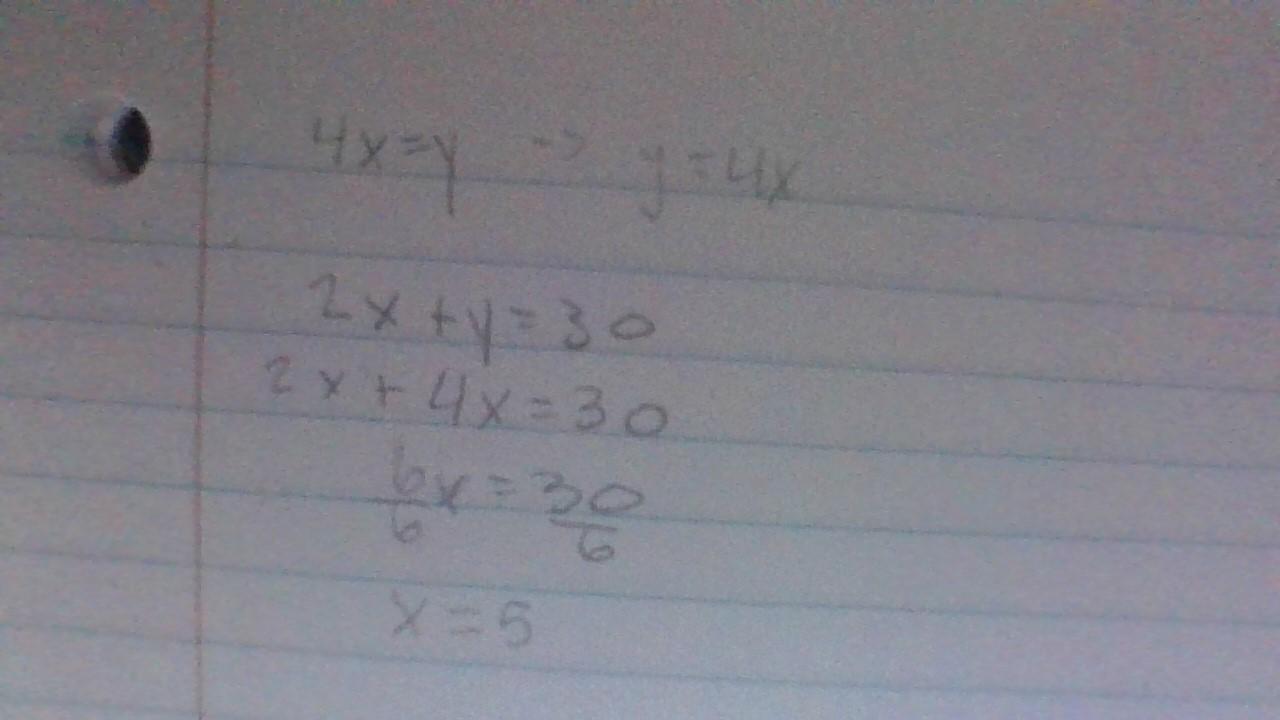 4x=y -> y=4x
2x+y=30
2x+4x=30
6x=30
6 6
x=5